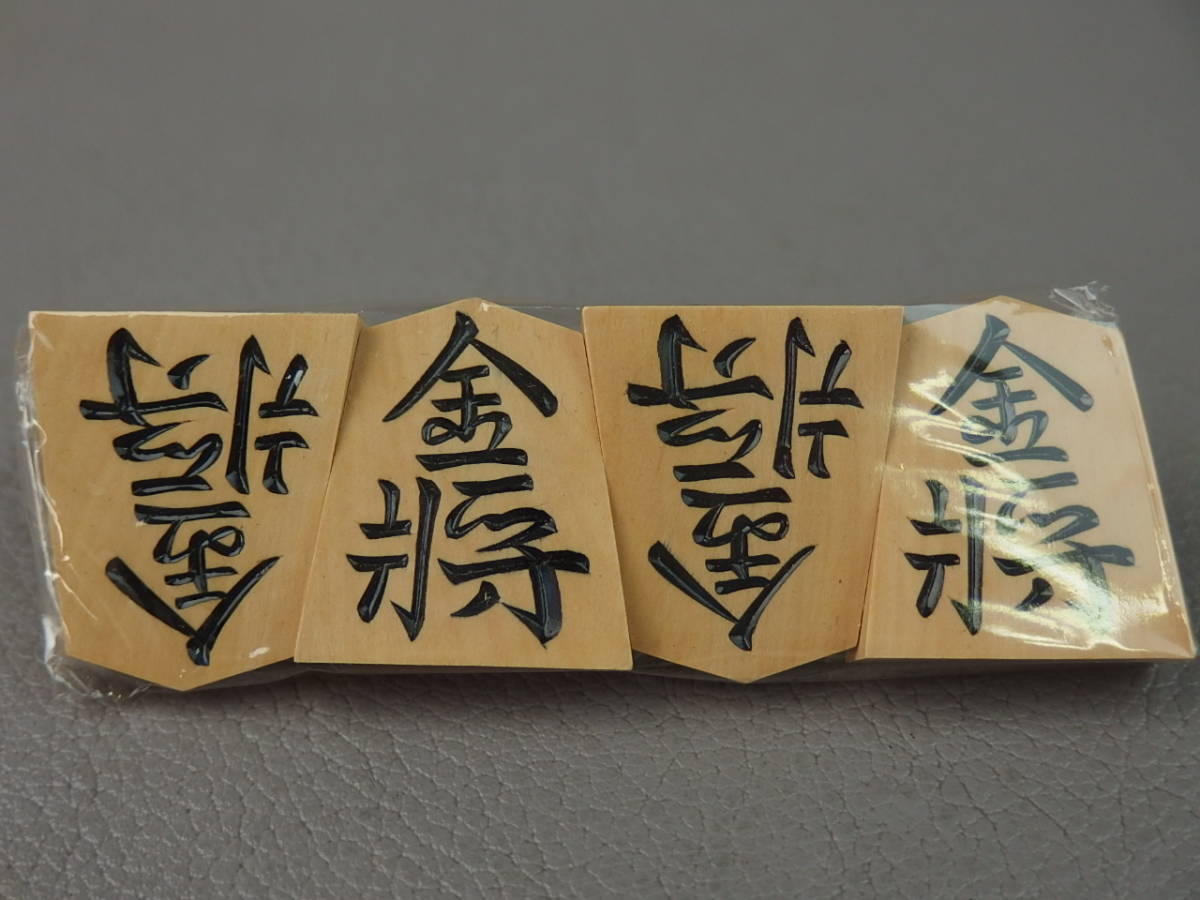 金将
金将
金将
金将